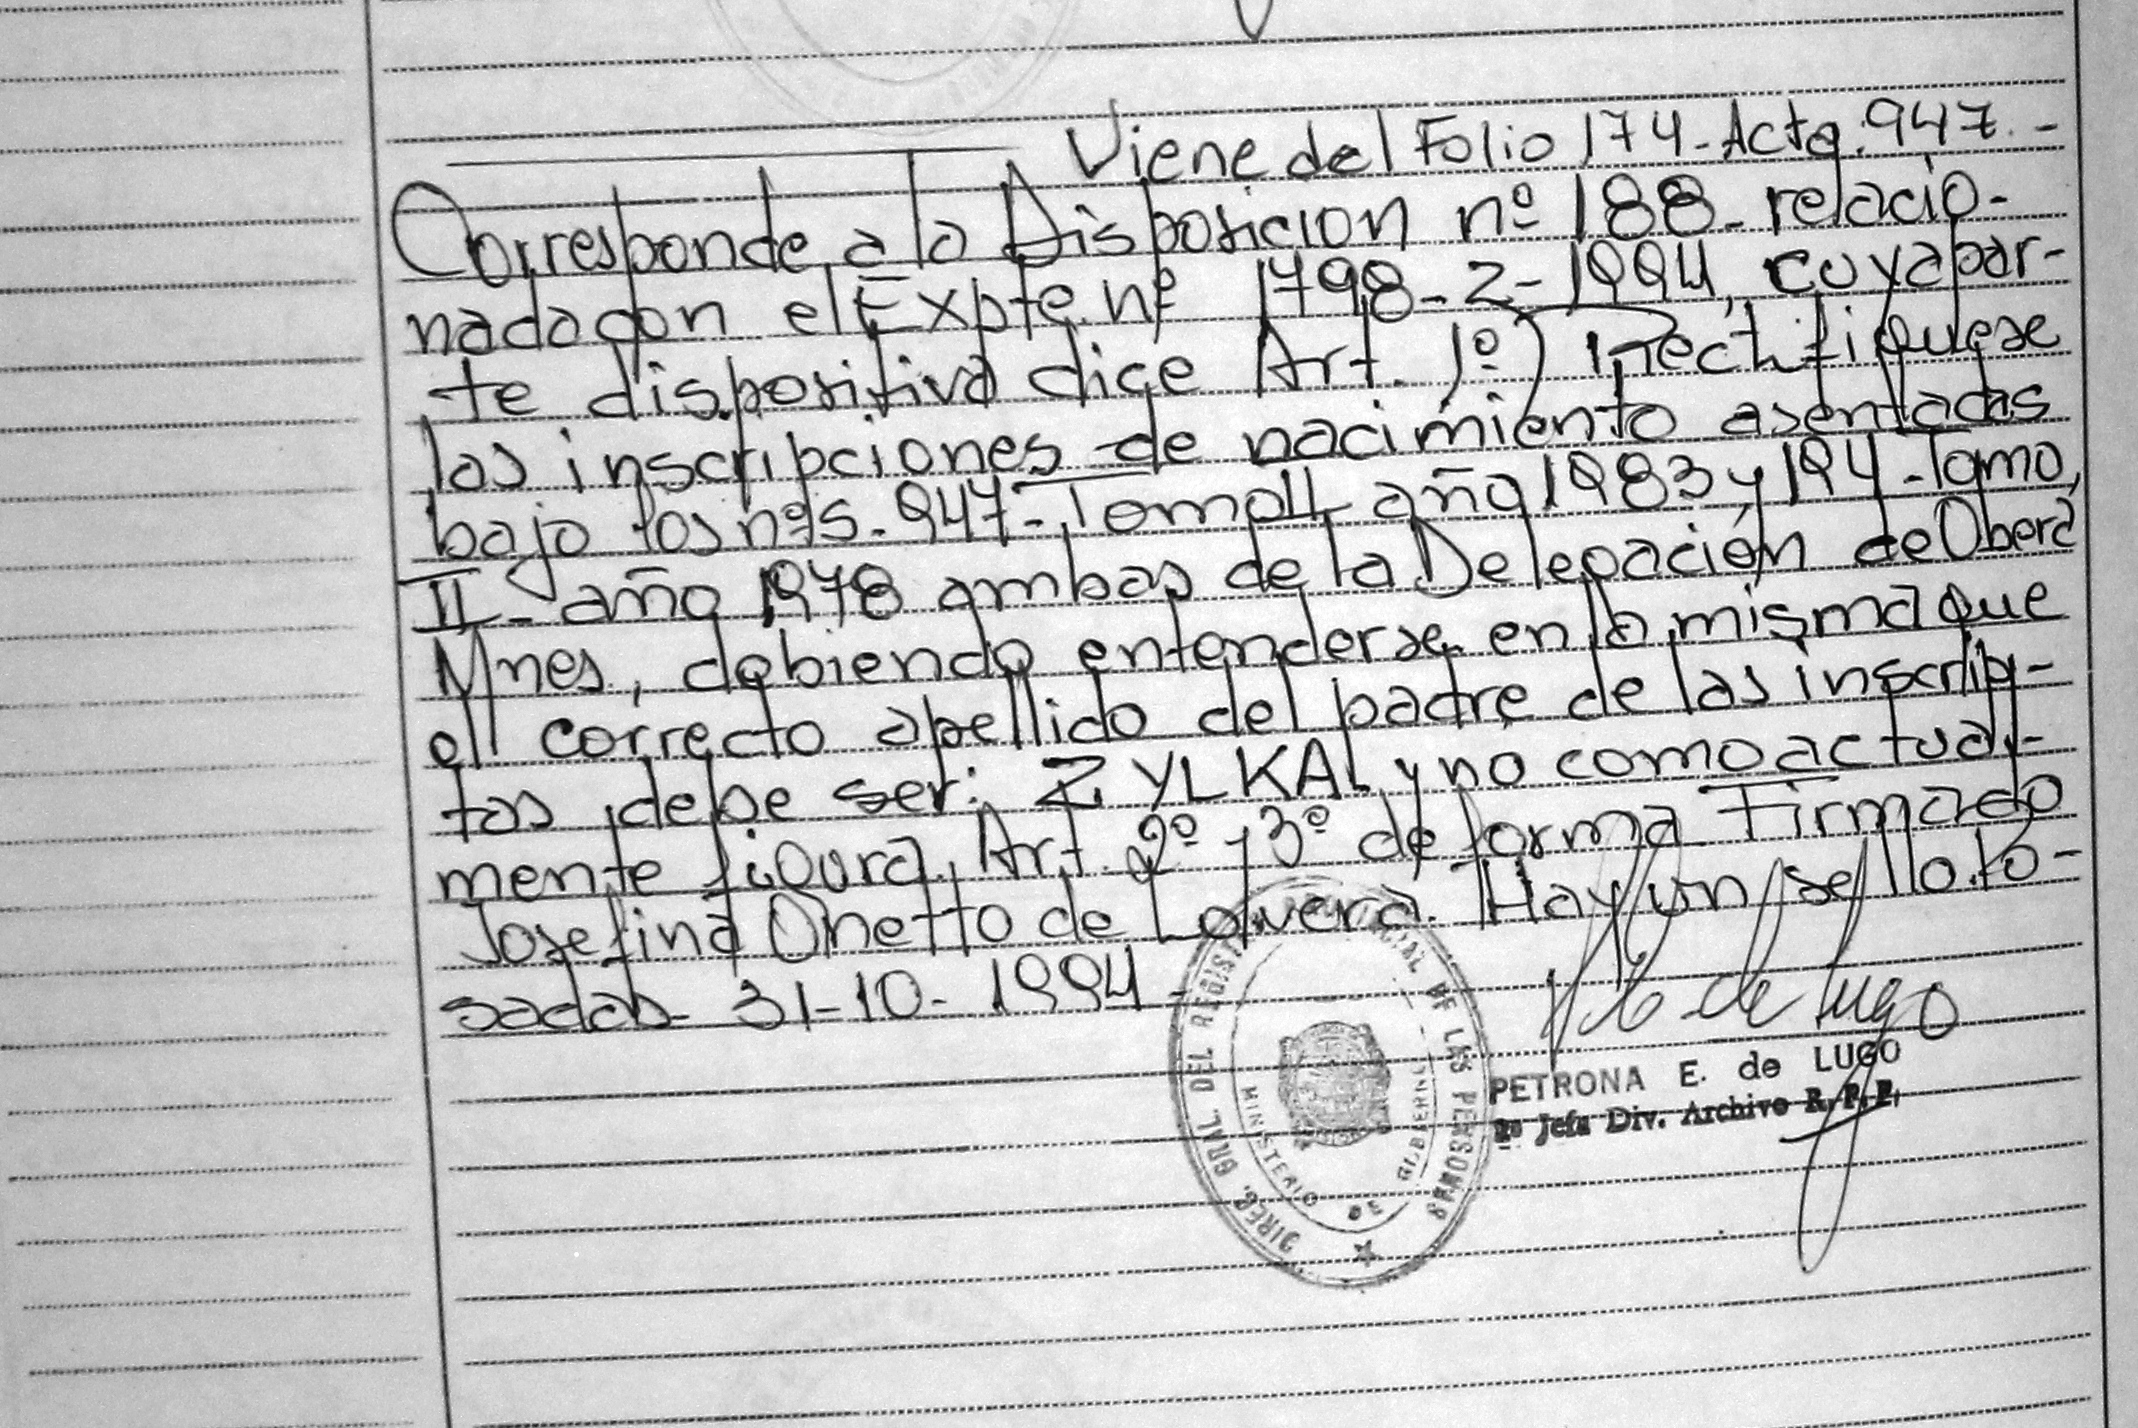 Viene del Folio 174-Acta.947.-
Corresponde a la Disposicion nº 188-relacio-
nada con el Expte.nº 1798-Z-1994, cuya par-
te dispositiva dice Art. 1º) Rectifiquese
las inscripciones de nacimiento asentadas
bajo los nºs-947-Tomo II año 1983 y 194-Tomo
II-año 1978 ambas de la Delegación de Oberá
Mnes, debiendo entenderse en la misma que
el correcto apellido del padre de las inscrip-
tas debe ser: ZYLKAL y no como actual-
mente figura. Art. 2º y 3º de forma Firmado
Josefina Onetto de Lovera. Hay un sello.Po-
sadas-31-10-1994-
de Lugo
PETRONA E. de LUGO
Jefa Div. Archivo R.P.P.
DIREC. GRAL. DEL REGISTRO PROVINCIAL DE LAS PERSONAS
MINISTERIO DE GOBIERNO